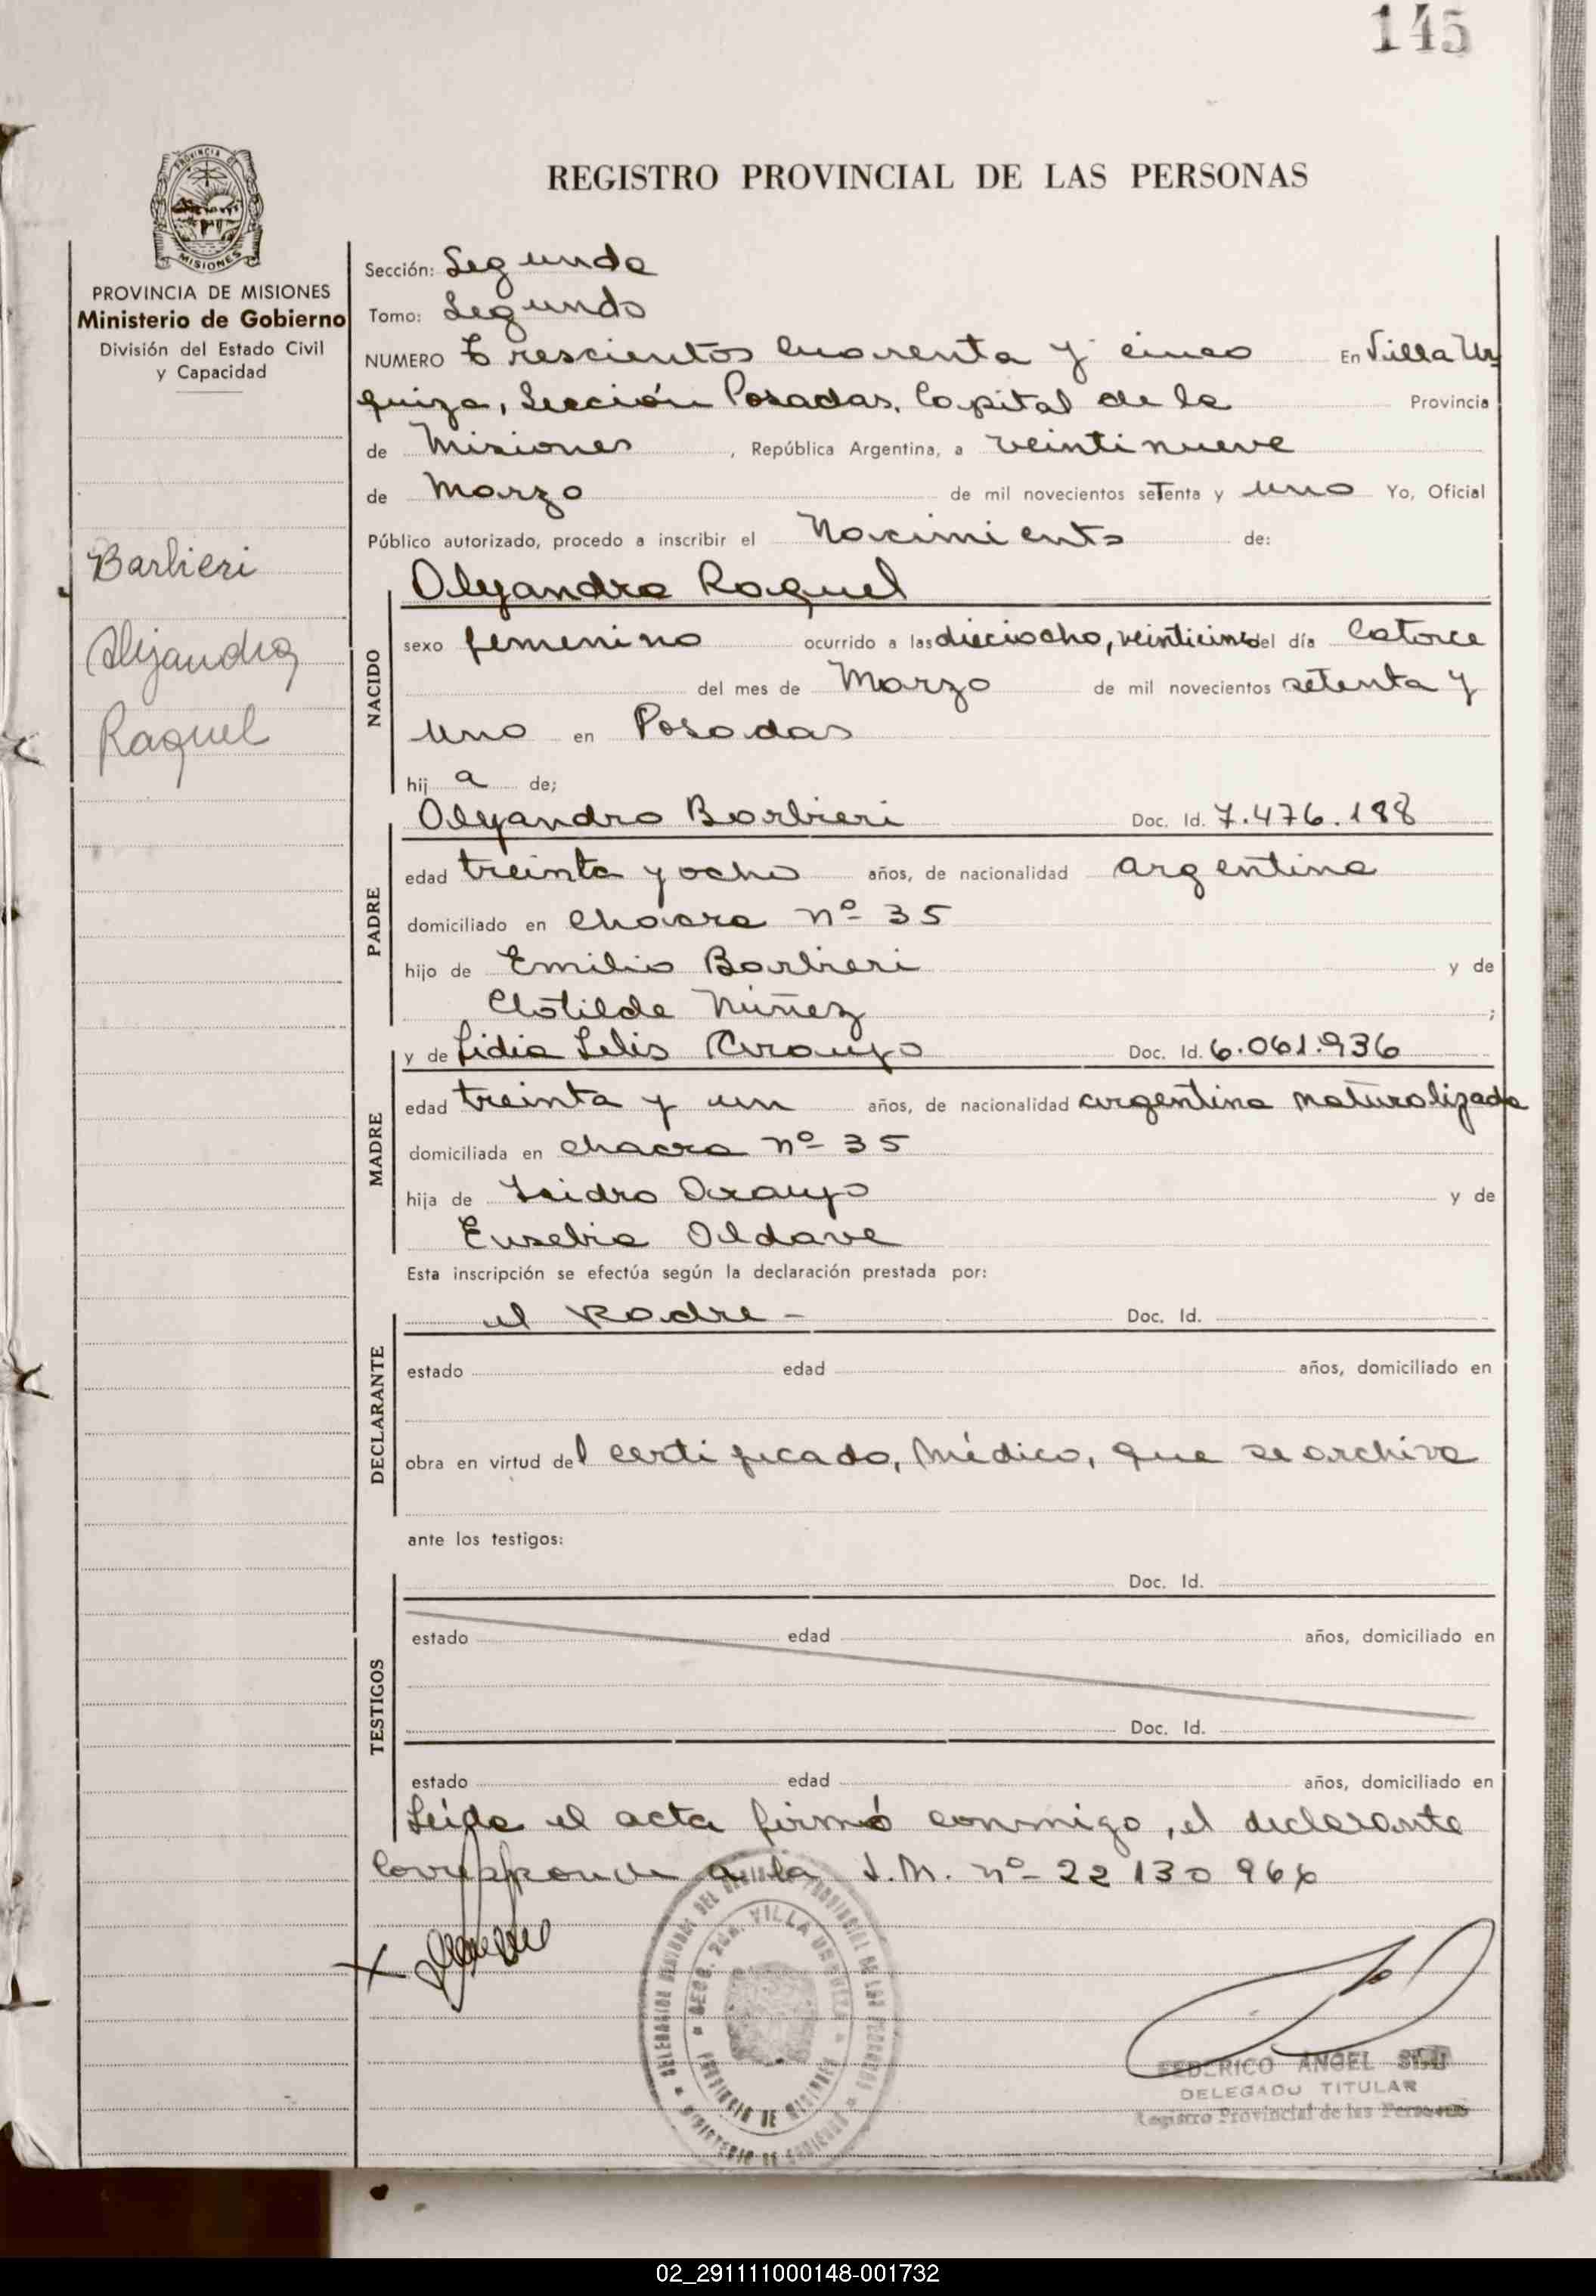 145
REGISTRO PROVINCIAL DE LAS PERSONAS
PROVINCIA DE MISIONES
PROVINCIA DE MISIONES
Ministerio de Gobierno
División del Estado Civil
y Capacidad
Barbieri
Alejandra
Raquel
Sección: Segunda
Tomo: Segundo
NUMERO Trescientos Cuarenta y cinco En Villa Ur
quiza, Sección Posadas, Capital de la Provincia
de Misiones, República Argentina, a veintinueve
de Marzo de mil novecientos setenta y uno Yo, Oficial
Público autorizado, procedo a inscribir el Nacimiento de:
NACIDO
Alejandra Raquel
sexo femenino ocurrido a las dieciocho, veinticinco del día Catorce
del mes de Marzo de mil novecientos setenta y
uno en Posadas
hij a de;
PADRE
Alejandro Barbieri Doc. Id. 7.476.188
edad treinta y ocho años, de nacionalidad argentina
domiciliado en Chacra nº 35
hijo de Emilio Barbieri y de
Clotilde Núñez;
MADRE
y de Lidia Lelis Araujo Doc. Id. 6.061.936
edad treinta y un años, de nacionalidad argentina naturalizada
domiciliada en chacra nº 35
hija de Isidro Araujo y de
Eusebia Aldave
Esta inscripción se efectúa según la declaración prestada por:
DECLARANTE
el Padre - Doc. Id.
estado edad años, domiciliado en
obra en virtud del certificado, Médico, que se archiva
ante los testigos:
TESTIGOS
Doc. Id.
estado edad años, domiciliado en
Doc. Id.
estado edad años, domiciliado en
Leída el acta firmó conmigo, el declarante
Corresponde a la I.M. nº 22 130 966
DELEGACION SEGUNDA DEL REGISTRO PROVINCIAL DE LAS PERSONAS
SECC. 2da. VILLA URQUIZA
PROVINCIA DE MISIONES
MINISTERIO DE GOBIERNO
FEDERICO ANGEL
DELEGADO TITULAR
Registro Provincial de las Personas
02_291111000148-001732